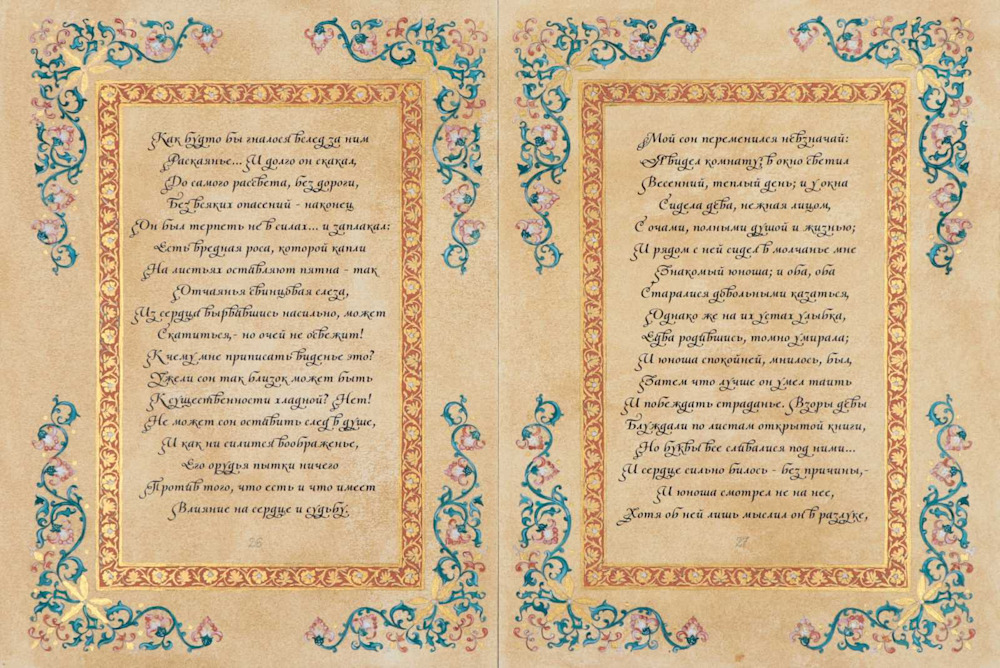 Как будто бы гналося вслед за ним
Раскаянье... И долго он скакал,
До самого рассвета, без дороги,
Без всяких опасений - наконец
Он был терпеть не в силах... и заплакал:
Есть вредная роса, которой капли
На листьях оставляют пятна - так
Отчаянья свинцовая слеза,
Из сердца вырвавшись насильно, может
Скатиться,- но очей не освежит!
К чему мне приписать виденье это?
Ужели сон так близок может быть
К существенности хладной? Нет!
Не может сон оставить след в душе,
И как ни силится воображенье,
Его орудья пытки ничего
Против того, что есть и что имеет
Влияние на сердце и судьбу.
26
Мой сон переменился невзначай:
Я видел комнату; в окно светил
Весенний, теплый день; и у окна
Сидела дева, нежная лицом,
С очами, полными душой и жизнью;
И рядом с ней сидел в молчанье мне
Знакомый юноша; и оба, оба
Старалися довольными казаться,
Однако же на их устах улыбка,
Едва родившись, томно умирала;
И юноша спокойней, мнилось, был,
Затем что лучше он умел таить
И побеждать страданье. Взоры девы
Блуждали по листам открытой книги,
Но буквы все сливалися под ними...
И сердце сильно билось - без причины,-
И юноша смотрел не на нее,
Хотя об ней лишь мыслил он в разлуке,
27